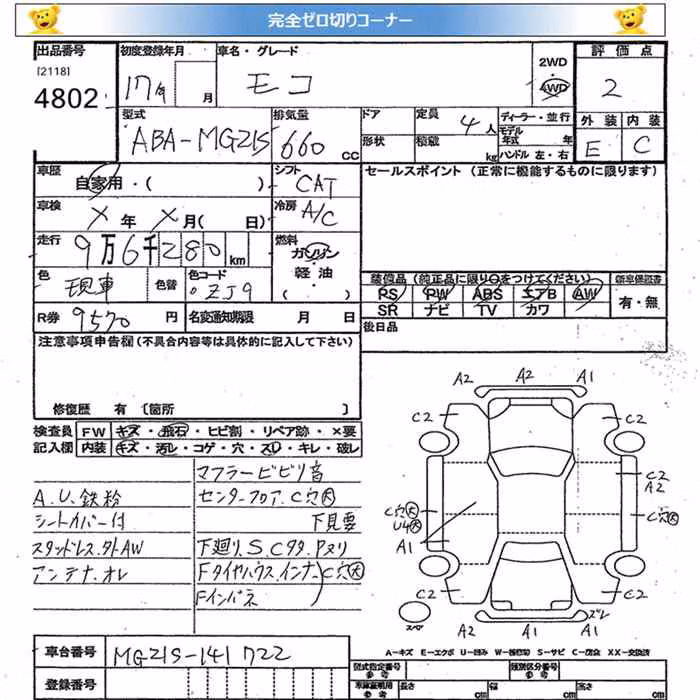 完全ゼロ切りコーナー
出品番号 初度登録年月 車名・グレード 評価点
[2118] 4802
17年 月 モコ 2WD 4WD 2
型式 排気量 ドア 定員 ディーラー・並行 外装 内装
ABA-MG21S 660 CC 4人 モデル年式 年 E C
形状 積載 kg ハンドル 左・右
車歴 自家用・( ) シフト CAT セールスポイント (正常に機能するものに限ります)
車検 ×年 ×月( 日) 冷房 A/C
走行 9万6千280km 燃料 ガソリン 軽油 ( )
色 現車 色替 色コード ZJ9
装備品 (純正品に限り○をつけてください) 新車保証書
PS PW ABS エアB AW 有・無
SR ナビ TV カワ
R券 9570円 名変通知期限 月 日 後日品
注意事項申告欄(不具合内容等は具体的に記入して下さい)
修復歴 有 [箇所 ]
検査員 FW キズ・飛石・ヒビ割・リペア跡・×要
記入欄 内装 キズ・汚レ・コゲ・穴・スレ・キレ・破レ
マフラービビリ音
A.U.鉄粉 センターフロア.C穴大
シートカバー付 下見要
スタッドレス.外AW 下廻り.S.Cタタ.Pヌリ
アンテナ.オレ Fタイヤハウス.インナ.C穴大
Fインパネ
A2 A2 A1
C2 C2
C2
A2
C穴大 C穴大
U4大
A1
C2 C2
スペア A2 A1 ズレ
A1
A-キズ E-エクボ U-凹み W-補修跡 S-サビ C-腐食 XX-交換済
車台番号 MG21S-141722
登録番号
型式指定番号 類別区分番号
車庫証明用 長さ cm 幅 cm 高さ cm